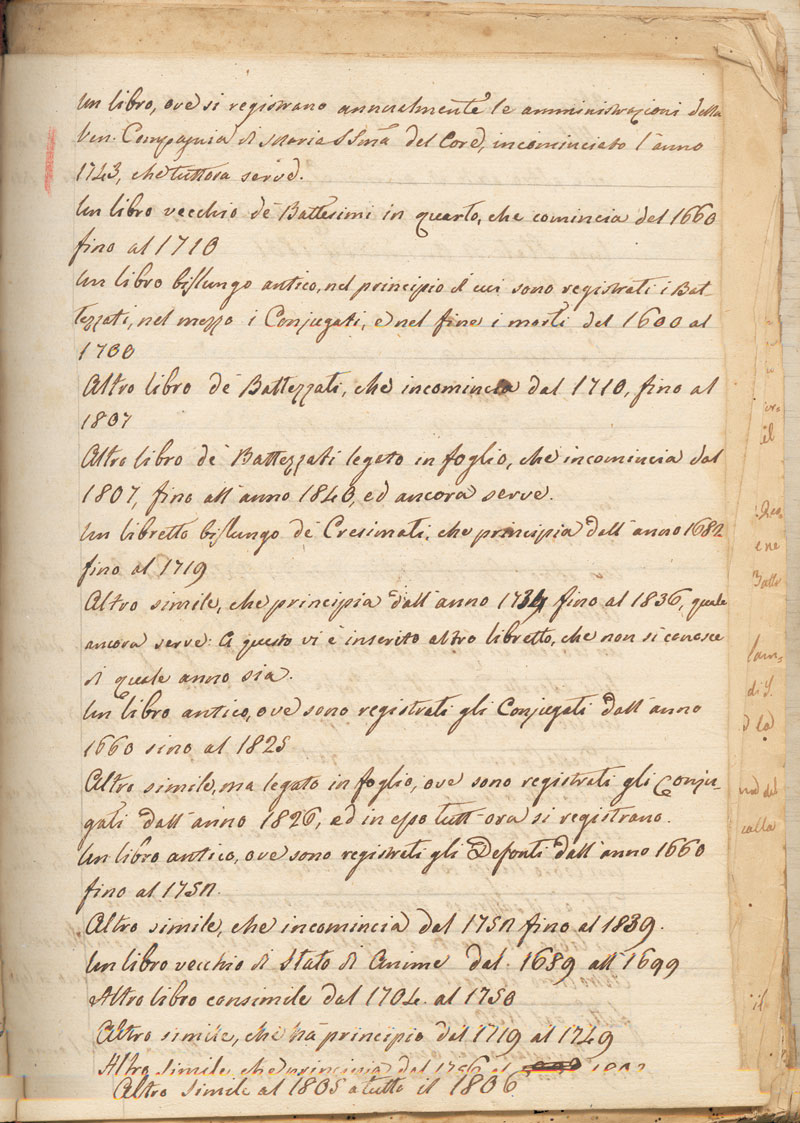 Un libro, ove si registrano annualmente le amministrazioni della
Ven: Compagnia di Maria SSma del Core, incominciato l'anno
1743, che tuttora serve.
Un libro vecchio de Battesimi in quarto, che comincia del 1660
fino al 1710
Un libro bislungo antico, nel principio di cui sono registrati i Bat-
tezzati, nel mezzo i Conjugati, e nel fine i morti del 1600 al
1700
Altro libro de Battezzati, che incomincia dal 1710, fino al
1807
Altro libro de Battezzati legato in foglio, che incomincia dal
1807, fino all'anno 1840, ed ancora serve.
Un libretto bislungo de Cresimati, che principia dall'anno 1682
fino al 1719
Altro simile, che principia dall'anno 1734 fino al 1836, quale
ancora serve. A questo vi è inserito altro libretto, che non si conosce
di quale anno sia.
Un libro antico, ove sono registrati gli Conjugati dall'anno
1660 sino al 1825
Altro simile, ma legato in foglio, ove sono registrati gli Conju-
gati dall'anno 1826, ed in esso tutt-ora si registrano.
Un libro antico, ove sono registrati gli Defonti dall'anno 1660
fino al 1750
Altro simile, che incomincia del 1750 fino al 1839.
Un libro vecchio di Stato di Anime dal 1689 all'1699
Altro libro consimile dal 1704 al 1750
Altro simile, che ha principio dal 1719 al 1749
Altro simile che principia dal 1756 al
Altro simile al 1805 a tutto il 1806
il
ene
di S.
d la
calla
il